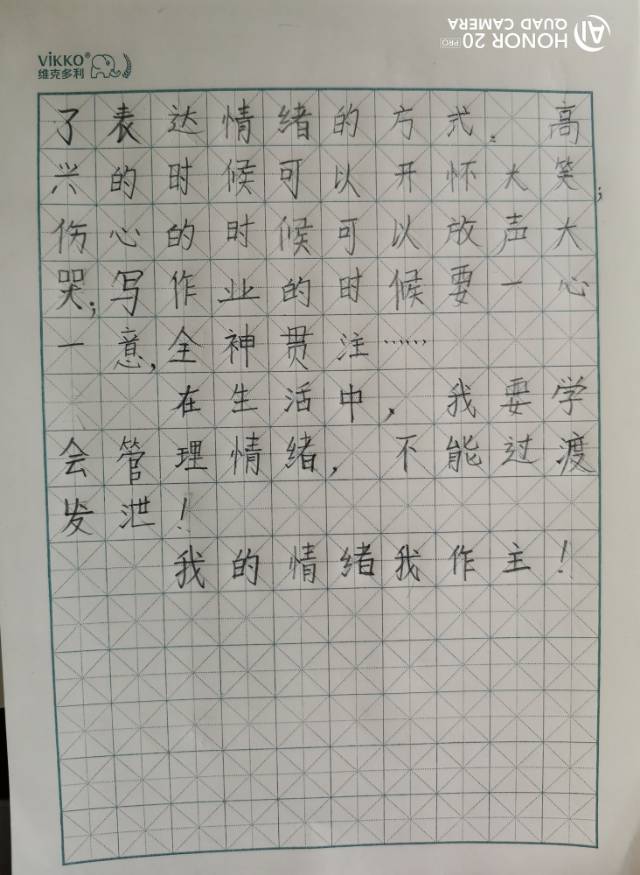 HONOR 20 PRO
AI QUAD CAMERA
ViKKO®
维克多利
了表达情绪的方式。高
兴的时候可以开怀大笑；
伤心的时候可以放声大
哭；写作业的时候要一心
一意，全神贯注……
在生活中，我要学
会管理情绪，不能过渡
发泄！
我的情绪我作主！